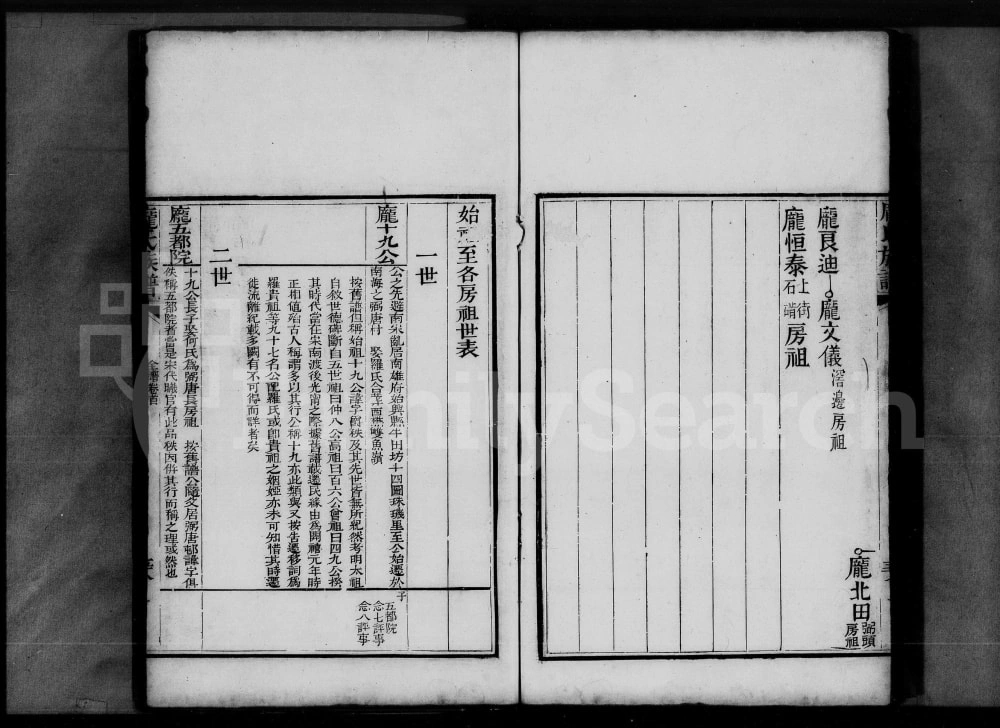 龐北田弼頭房祖
龐艮迪 龐文儀滘邊房祖
龐恒泰上街石𡎺房祖
始祖至各房祖世表
一世
龐十九公
公之先避南宋亂居南雄府始興縣牛田坊十四圖珠璣里至公始遷於
南海之弼唐村 娶羅氏合葬西樵雙魚嶺
子
五都院
念七評事
念八評事
按舊譜但稱始祖十九公諱字爵秩及其先世皆無所紀然考明太祖
自敘世德碑斷自五世祖曰仲八公高祖曰百六公曾祖曰四九公揆
其時代當在宋南渡後光甯之際據舊譜載遷民緣由為開禧元年時
正相值殆古人稱謂多以其行公稱十九亦此類與又按告遷移詞為
羅貴祖等九十七名公配羅氏或即貴祖之姻婭亦未可知惜其時遷
徙流離紀載多闕有不可得而詳者矣
二世
龐五都院
十九公長子娶何氏為弼唐長房祖 按舊譜公隨父居弼唐邨諱字俱
佚稱五都院者當是宋代職官有此品秩因併其行而稱之理或然也
龐氏族譜
FamilySearch